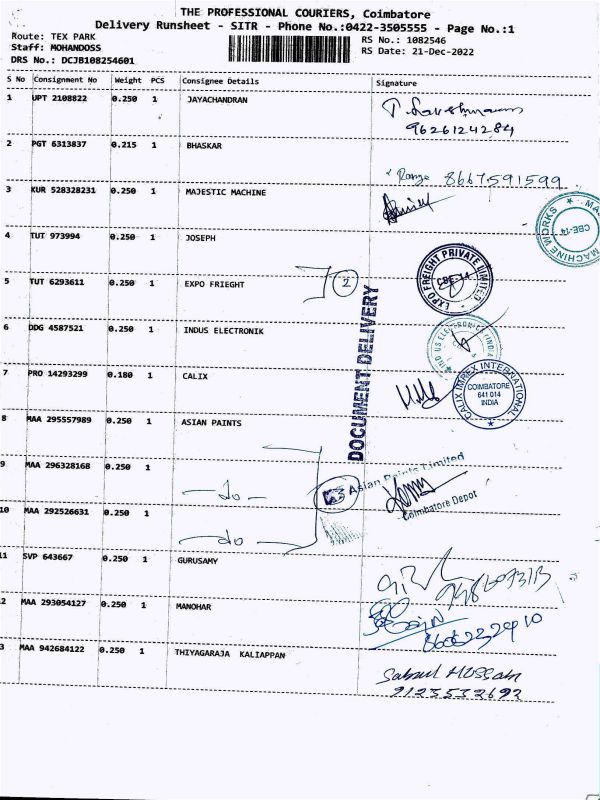 THE PROFESSIONAL COURIERS, Coimbatore
Delivery Runsheet - SITR - Phone No.:0422-3505555 - Page No.:1
Route: TEX PARK
Staff: MOHANDOSS
DRS No.: DCJB108254601
RS No.: 1082546
RS Date: 21-Dec-2022
S No Consignment No Weight PCS Consignee Details Signature
1 UPT 2108822 0.250 1 JAYACHANDRAN
9626124284
2 PGT 6313837 0.215 1 BHASKAR
8667591599
3 KUR 528328231 0.250 1 MAJESTIC MACHINE
MACHINE WORKS CBE-14
4 TUT 973994 0.250 1 JOSEPH
5 TUT 6293611 0.250 1 EXPO FRIEGHT
2
EXPO FREIGHT PRIVATE LIMITED CBE-14
DOCUMENT DELIVERY
6 DDG 4587521 0.250 1 INDUS ELECTRONIK
7 PRO 14293299 0.180 1 CALIX
CALIX IMPEX INTERNATIONAL
COIMBATORE
641 014
INDIA
8 MAA 295557989 0.250 1 ASIAN PAINTS
9 MAA 296328168 0.250 1
- do -
3
Asian Paints Limited
Coimbatore Depot
10 MAA 292526631 0.250 1
- do -
11 SVP 643667 0.250 1 GURUSAMY
2 MAA 293054127 0.250 1 MANOHAR
3 MAA 942684122 0.250 1 THIYAGARAJA KALIAPPAN
9123532692